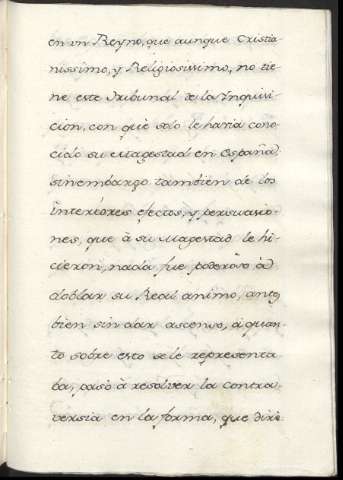 en vn Reyno, que aunque Cristia-
nissimo, y Religiosissimo, no tie-
ne este Tribunal de la Inquisi-
cion, con què solo le havia cono-
cido su Magestad en España
sinembargo tambien de los
interiores efectos, y persuasio-
nes, que à su Magestad le hi-
cieron, nada fue poderoso à
doblar su Real animo, antes
bien sin dar ascenso, à quan-
to sobre esto se le representa-
ba, pasò à resolver la contro-
versia en la forma, que dirè